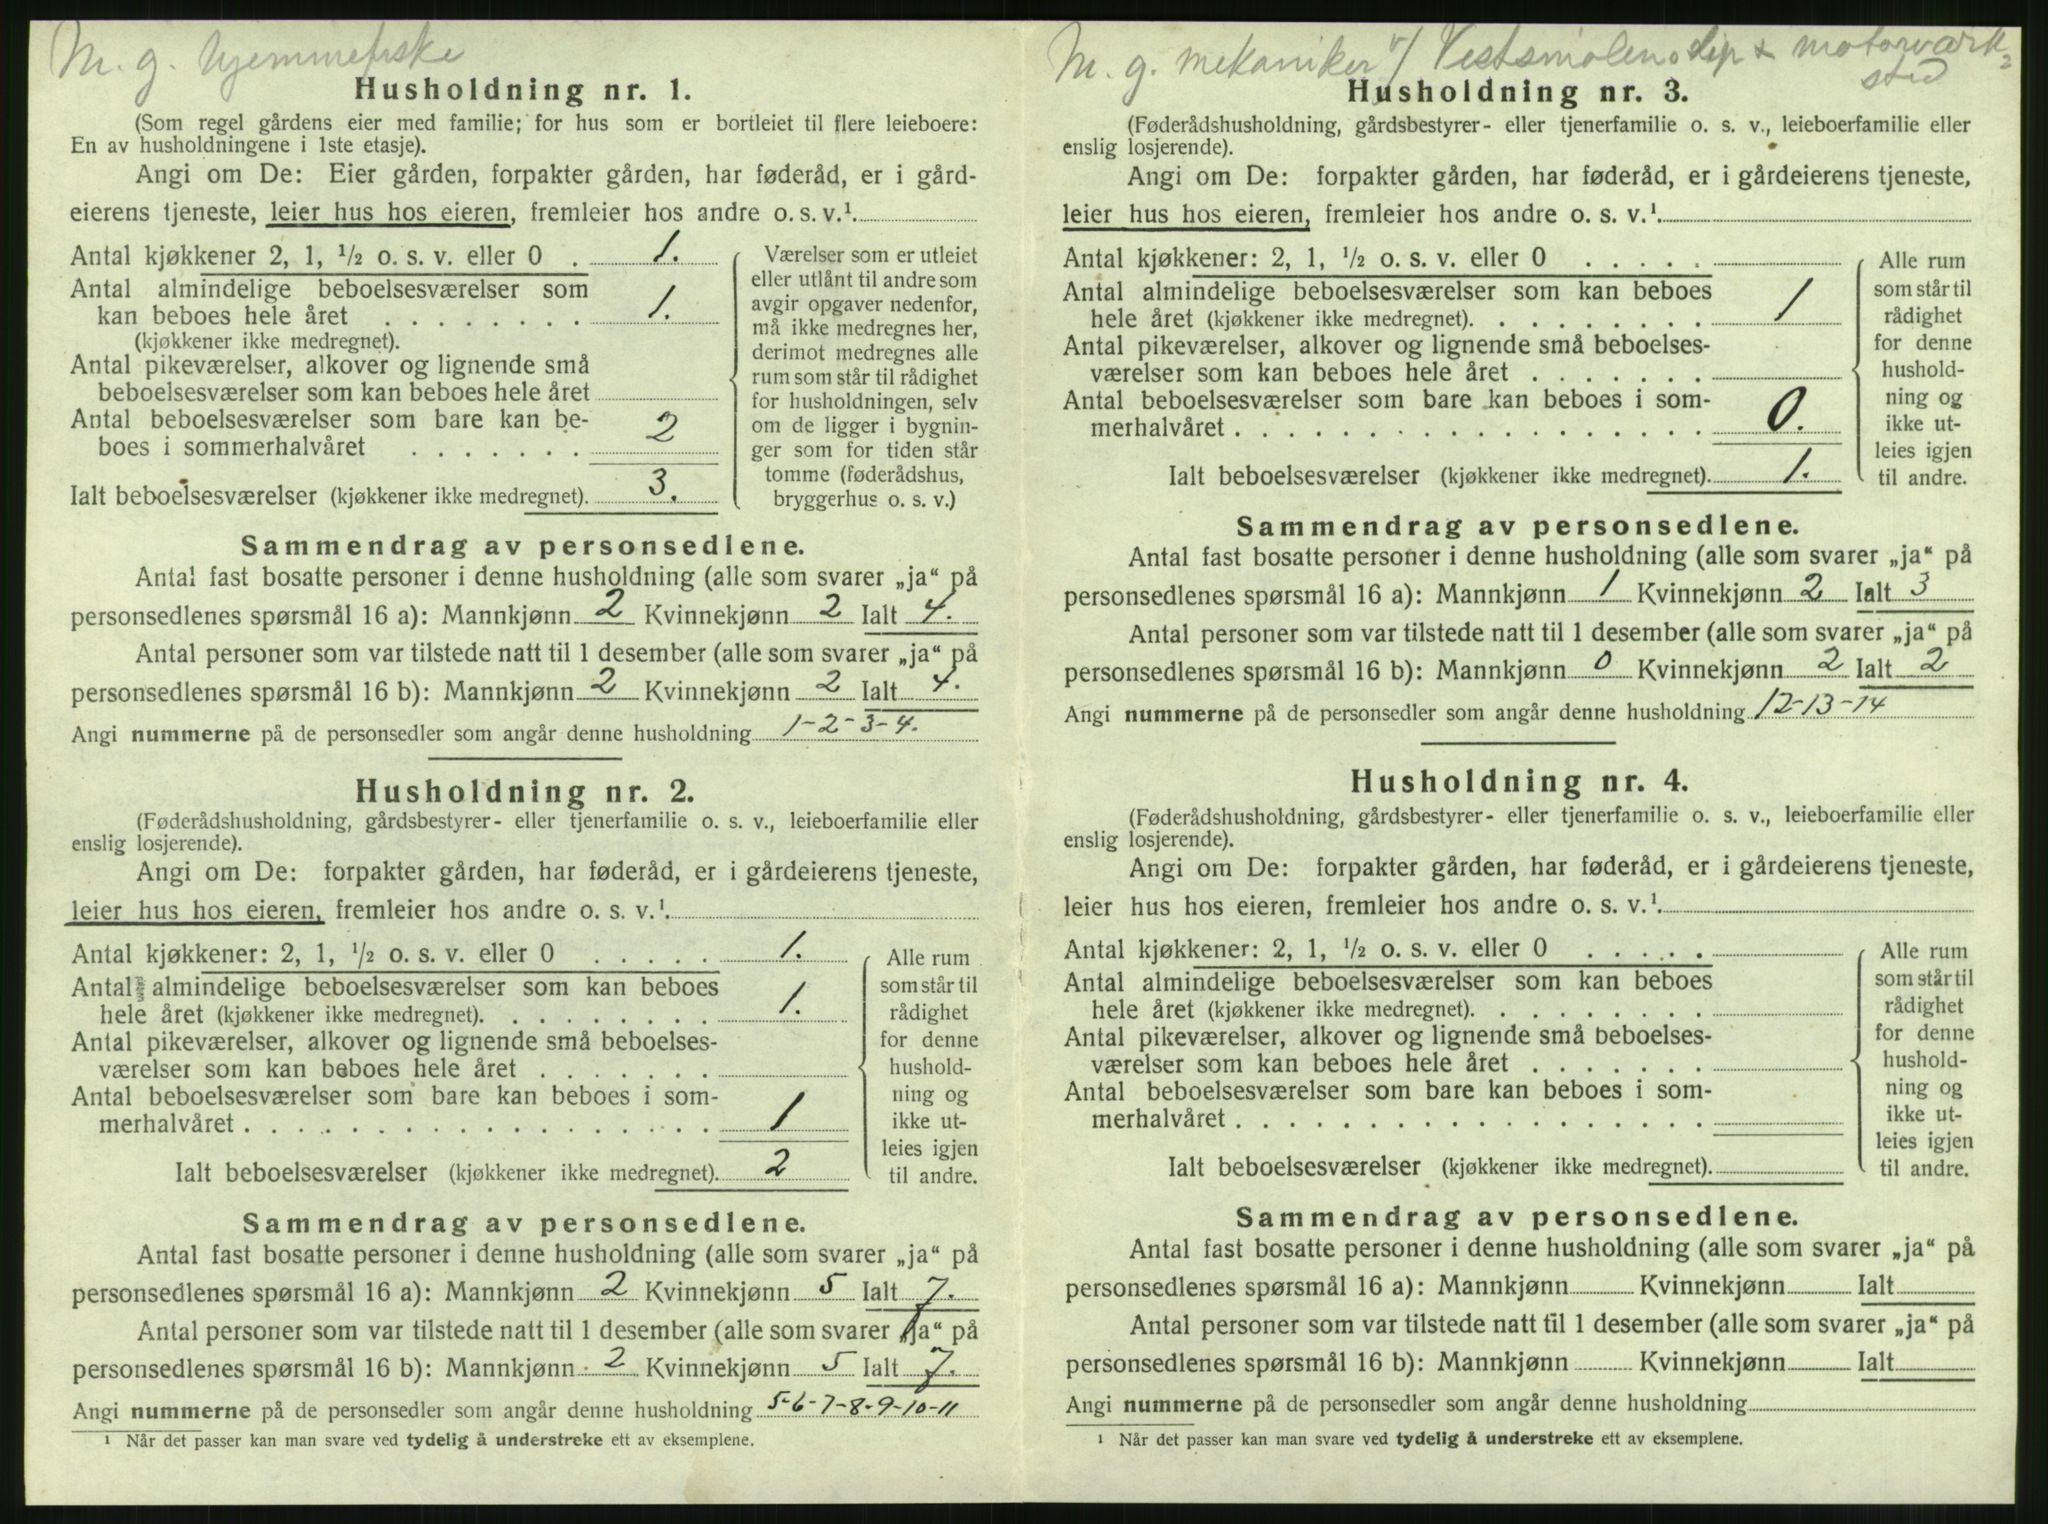 M. g. hjemmefiske
Husholdning nr. 1.
(Som regel gårdens eier med familie; for hus som er bortleiet til flere leieboere:
En av husholdningene i 1ste etasje).
Angi om De: Eier gården, forpakter gården, har føderåd, er i gård-
eierens tjeneste, leier hus hos eieren, fremleier hos andre o. s. v.¹
Antal kjøkkener 2, 1, ½ o. s. v. eller 0 . 1.
Antal almindelige beboelsesværelser som
kan beboes hele året . . . . . . . . 1.
(kjøkkener ikke medregnet).
Antal pikeværelser, alkover og lignende små
beboelsesværelser som kan beboes hele året
Antal beboelsesværelser som bare kan be-
boes i sommerhalvåret . . . . . . . 2
Ialt beboelsesværelser (kjøkkener ikke medregnet). 3.
Værelser som er utleiet
eller utlånt til andre som
avgir opgaver nedenfor,
må ikke medregnes her,
derimot medregnes alle
rum som står til rådighet
for husholdningen, selv
om de ligger i bygnin-
ger som for tiden står
tomme (føderådshus,
bryggerhus o. s. v.)
Sammendrag av personsedlene.
Antal fast bosatte personer i denne husholdning (alle som svarer „ja“ på
personsedlenes spørsmål 16 a): Mannkjønn 2 Kvinnekjønn 2 Ialt 4.
Antal personer som var tilstede natt til 1 desember (alle som svarer „ja“ på
personsedlenes spørsmål 16 b): Mannkjønn 2 Kvinnekjønn 2 Ialt 4.
Angi nummerne på de personsedler som angår denne husholdning 1-2-3-4.
Husholdning nr. 2.
(Føderådshusholdning, gårdsbestyrer- eller tjenerfamilie o. s. v., leieboerfamilie eller
enslig losjerende).
Angi om De: forpakter gården, har føderåd, er i gårdeierens tjeneste,
leier hus hos eieren, fremleier hos andre o. s. v.¹
Antal kjøkkener: 2, 1, ½ o. s. v. eller 0 . . . . . 1.
Antal almindelige beboelsesværelser som kan beboes
hele året (kjøkkener ikke medregnet). . . . . . . . . 1.
Antal pikeværelser, alkover og lignende små beboelses-
værelser som kan beboes hele året . . . . . . .
Antal beboelsesværelser som bare kan beboes i som-
merhalvåret . . . . . . . . . . . . . . . . . . 1
Ialt beboelsesværelser (kjøkkener ikke medregnet). 2
Alle rum
som står til
rådighet
for denne
hushold-
ning og
ikke ut-
leies igjen
til andre.
Sammendrag av personsedlene.
Antal fast bosatte personer i denne husholdning (alle som svarer „ja“ på
personsedlenes spørsmål 16 a): Mannkjønn 2 Kvinnekjønn 5 Ialt 7.
Antal personer som var tilstede natt til 1 desember (alle som svarer „ja“ på
personsedlenes spørsmål 16 b): Mannkjønn 2 Kvinnekjønn 5 Ialt 7.
Angi nummerne på de personsedler som angår denne husholdning 5-6-7-8-9-10-11
¹ Når det passer kan man svare ved tydelig å understreke ett av eksemplene.
M. g. mekaniker v/ Vestsmølen slip & motorværk-
sted
Husholdning nr. 3.
(Føderådshusholdning, gårdsbestyrer- eller tjenerfamilie o. s. v., leieboerfamilie eller
enslig losjerende).
Angi om De: forpakter gården, har føderåd, er i gårdeierens tjeneste,
leier hus hos eieren, fremleier hos andre o. s. v.¹
Antal kjøkkener: 2, 1, ½ o. s. v. eller 0 . . . . .
Antal almindelige beboelsesværelser som kan beboes
hele året (kjøkkener ikke medregnet). . . . . . . . . 1
Antal pikeværelser, alkover og lignende små beboelses-
værelser som kan beboes hele året . . . . . . .
Antal beboelsesværelser som bare kan beboes i som-
merhalvåret . . . . . . . . . . . . . . . . . . 0.
Ialt beboelsesværelser (kjøkkener ikke medregnet). 1.
Alle rum
som står til
rådighet
for denne
hushold-
ning og
ikke ut-
leies igjen
til andre.
Sammendrag av personsedlene.
Antal fast bosatte personer i denne husholdning (alle som svarer „ja“ på
personsedlenes spørsmål 16 a): Mannkjønn 1 Kvinnekjønn 2 Ialt 3
Antal personer som var tilstede natt til 1 desember (alle som svarer „ja“ på
personsedlenes spørsmål 16 b): Mannkjønn 0 Kvinnekjønn 2 Ialt 2
Angi nummerne på de personsedler som angår denne husholdning 12-13-14
Husholdning nr. 4.
(Føderådshusholdning, gårdsbestyrer- eller tjenerfamilie o. s. v., leieboerfamilie eller
enslig losjerende).
Angi om De: forpakter gården, har føderåd, er i gårdeierens tjeneste,
leier hus hos eieren, fremleier hos andre o. s. v.¹
Antal kjøkkener: 2, 1, ½ o. s. v. eller 0 . . . . .
Antal almindelige beboelsesværelser som kan beboes
hele året (kjøkkener ikke medregnet). . . . . . . . .
Antal pikeværelser, alkover og lignende små beboelses-
værelser som kan beboes hele året . . . . . . .
Antal beboelsesværelser som bare kan beboes i som-
merhalvåret . . . . . . . . . . . . . . . . . .
Ialt beboelsesværelser (kjøkkener ikke medregnet).
Alle rum
som står til
rådighet
for denne
hushold-
ning og
ikke ut-
leies igjen
til andre.
Sammendrag av personsedlene.
Antal fast bosatte personer i denne husholdning (alle som svarer „ja“ på
personsedlenes spørsmål 16 a): Mannkjønn Kvinnekjønn Ialt
Antal personer som var tilstede natt til 1 desember (alle som svarer „ja“ på
personsedlenes spørsmål 16 b): Mannkjønn Kvinnekjønn Ialt
Angi nummerne på de personsedler som angår denne husholdning
¹ Når det passer kan man svare ved tydelig å understreke ett av eksemplene.